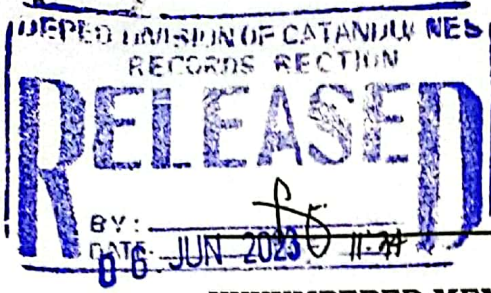 DEPED DIVISION OF CATANDUANES
RECORDS SECTION
RELEASED
BY:
DATE: 06 JUN 2023 11:34